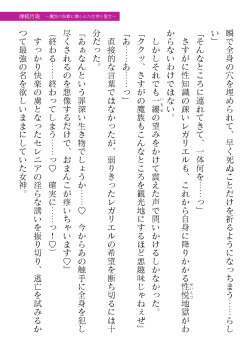 神核汚染 ～魔悦の陥穽に堕ちゆく女神と聖女～
瞬で全身の穴を埋められて、早く死ぬことだけを祈るようになっちまう……らし
い」
「そんなところに連れてきて、一体何を……っ」
さすがに性知識の疎いレガリエルも、これから自身に降りかかる性悦地獄がわ
からないわけではない。
しかしそれでも、一縷の望みをかけて震えた声で問いかけるしかなかった。
「ククッ、さすがの魔族もこんなところを観光地にするほど悪趣味じゃねぇぜ」
「あ……あ……っ」
直接的な言葉ではなかったが、弱りきったレガリエルの希望を断ち切るには十
分だった。
「あぁなんという罪深い生き物でしょうか……♡　今からあの触手に全身を犯し
尽くされるのを想像するだけで、おまんこが疼いちゃいます♡」
（終わる……終わってしまう……っ♡　確実に……っ！♡）
すっかり快楽の虜となったセレニアの淫らな誘いを振り切り、逃亡を試みるか
つて最強の名を欲しいままにしていた女神。